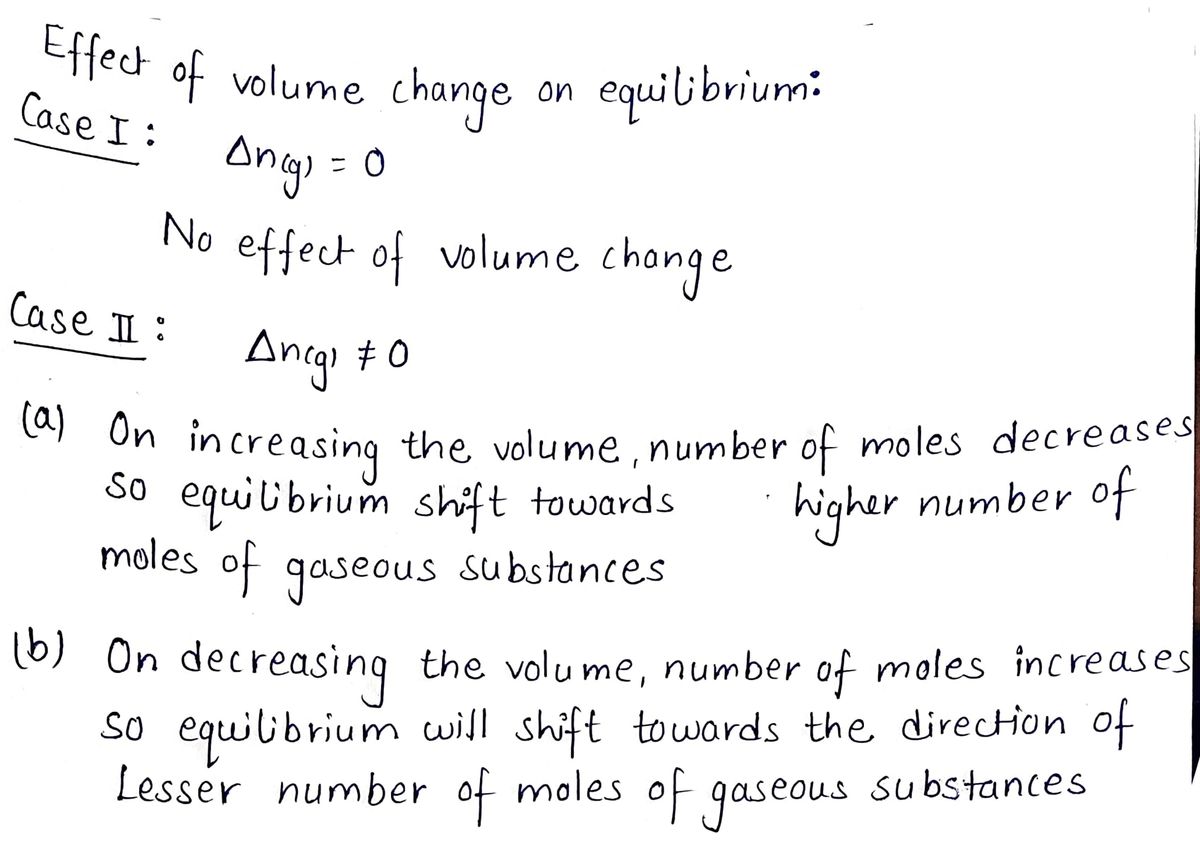 Effect of volume change on equilibrium:
Case I :
Δn(g) = 0
No effect of volume change
Case II :
Δn(g) ≠ 0
(a) On increasing the volume, number of moles decreases
so equilibrium shift towards higher number of
moles of gaseous substances
(b) On decreasing the volume, number of moles increases
so equilibrium will shift towards the direction of
Lesser number of moles of gaseous substances